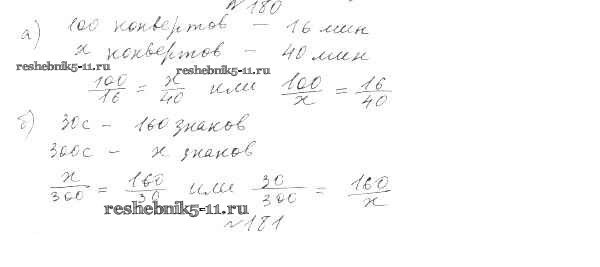 №180
а) 100 конвертов — 16 мин
x конвертов — 40 мин
reshebnik5-11.ru reshebnik5-11.ru
100/16 = x/40 или 100/x = 16/40
б) 30с — 160 знаков
300с — x знаков
x/300 = 160/30 или 30/300 = 160/x
reshebnik5-11.ru
№181